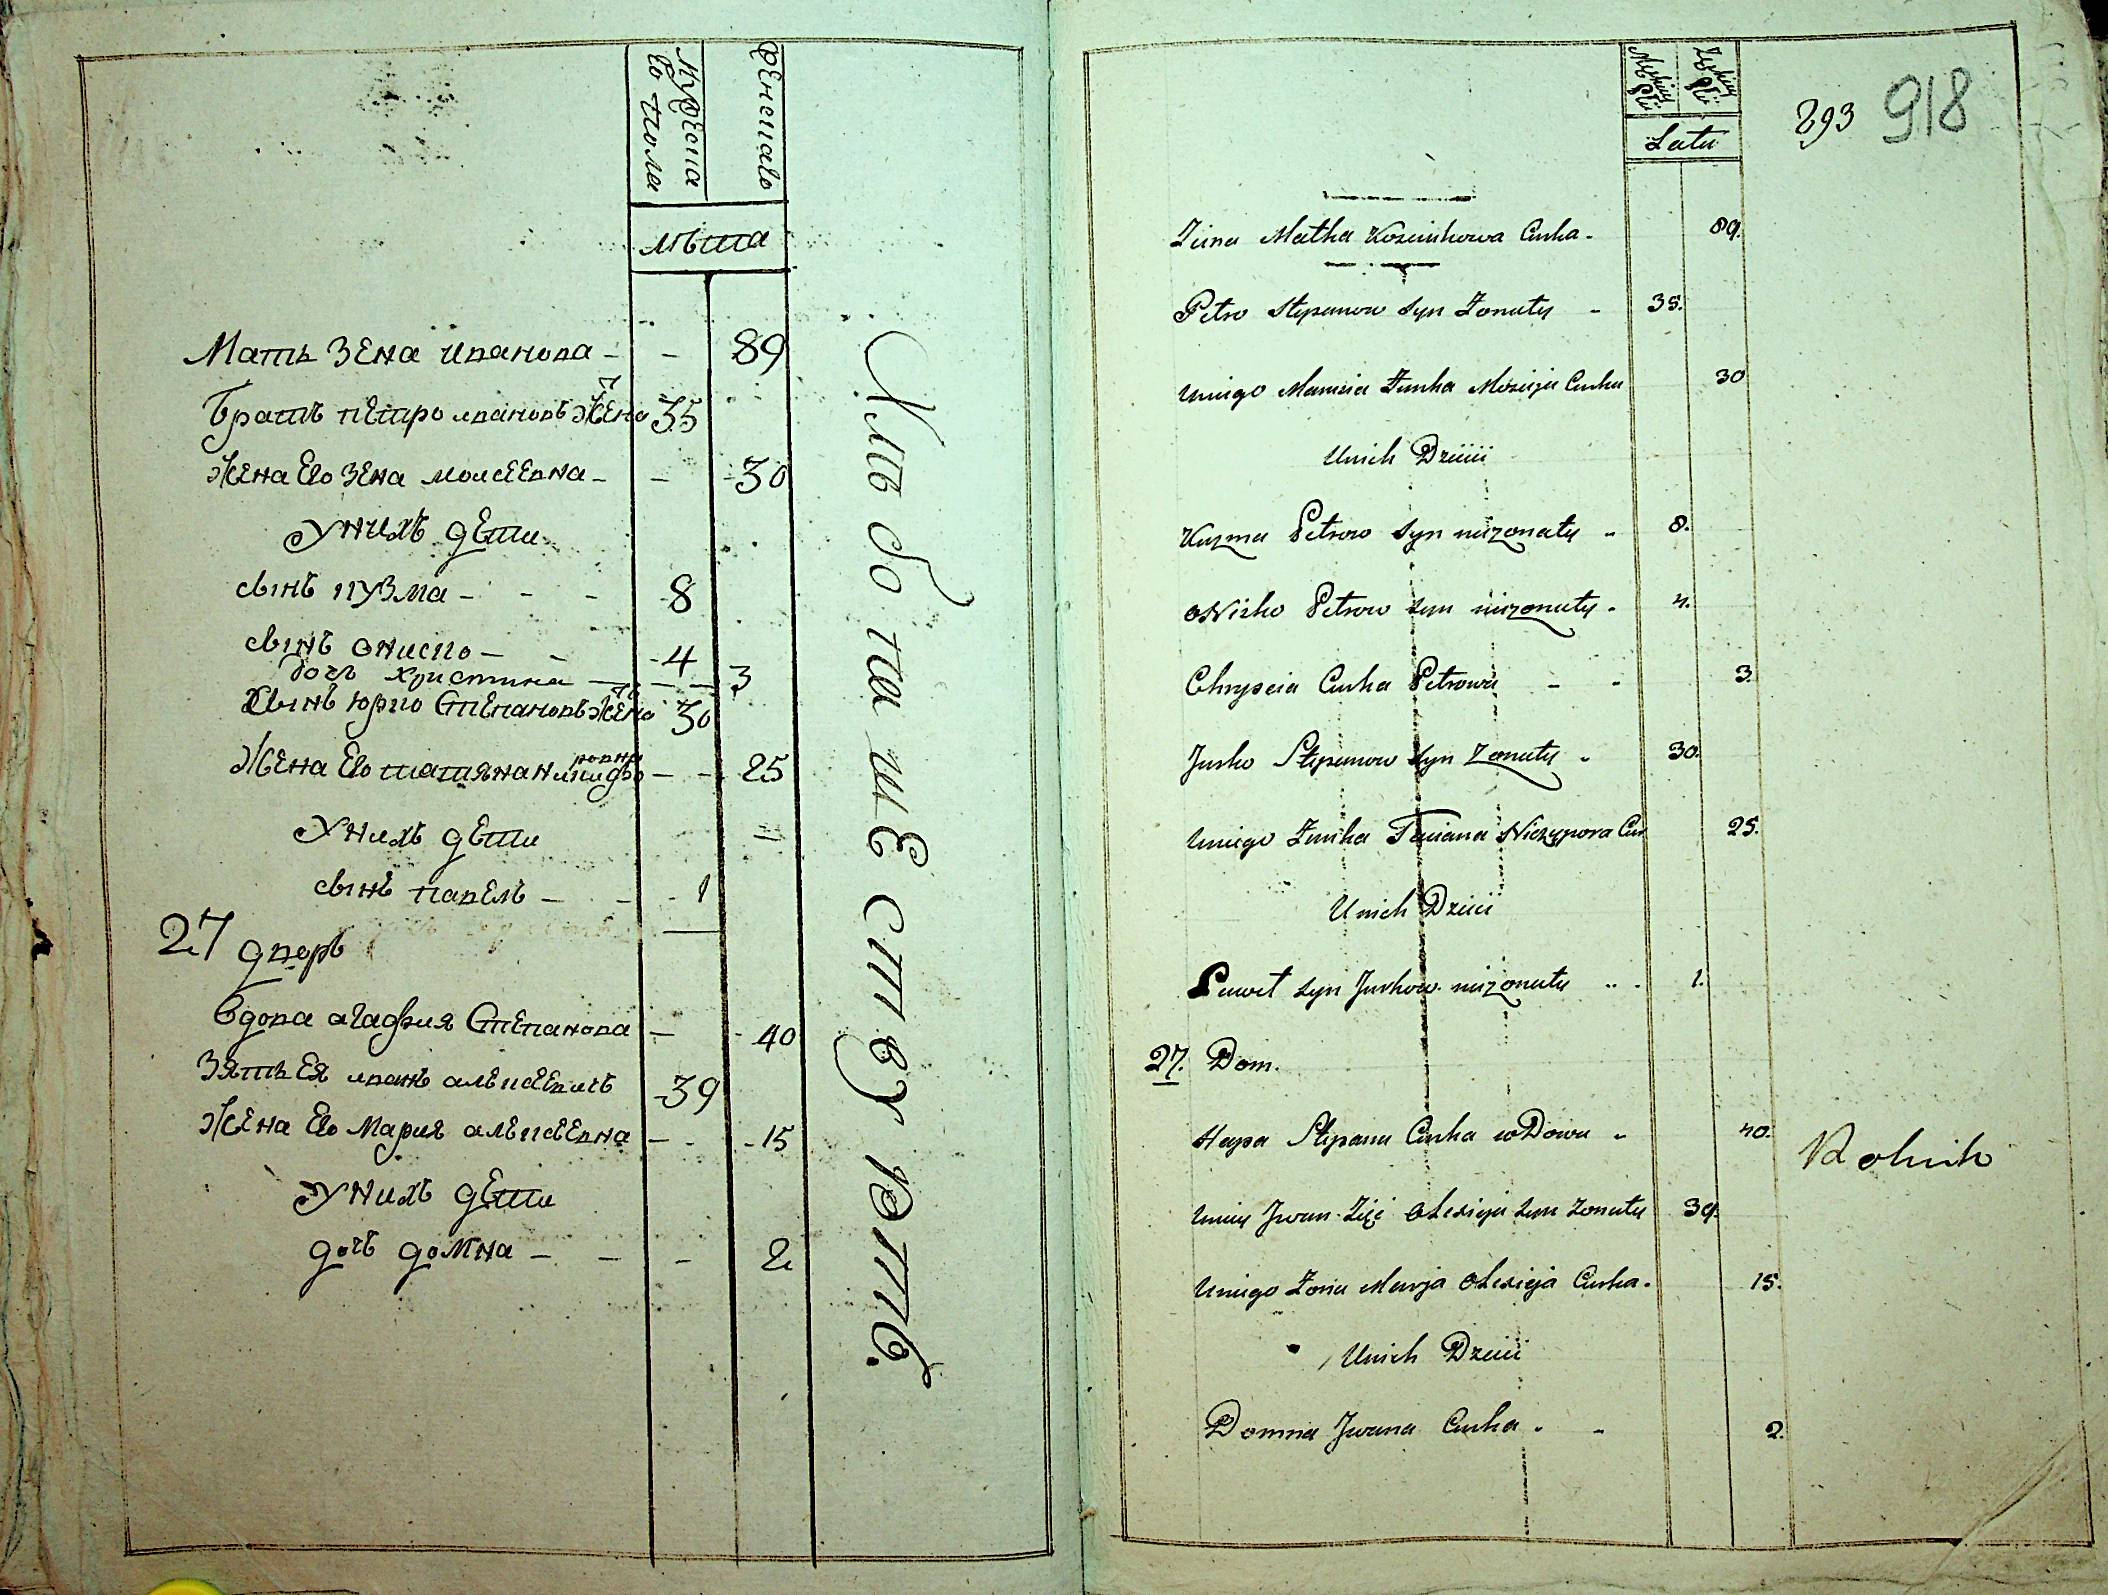 Мужеска
го пола
Женскаго
лѣта
Мать Зена иванова - - 89
Братъ петро ивановъ жена 35
жена Его Зена моисеевна - - 30
У нихъ дети
сынъ кузма - - - 8
сынъ ониско - - 4
дочь христина - - - 3
сынъ юрко Степановъ жена 30
Жена Его татяна никифо
ровна - - 25
У нихъ дети
сынъ павелъ - - 1
27 дворъ
Вдова агафия Степанова - 40
Зять Ея иванъ алексеевичъ 39
Жена Его Мария алексеевна - - 15
У нихъ дети
дочь домна - - - 2
Хлѣбопашеству
893 918
Męskiey Płci
Żeńskiey Płci
Lata
Zina Matka Curka. 89.
Petro Stepanow syn Żonaty - 35.
Uniego Żonka Mosieja Curka 30
Unich Dzieci
Kuzma Petrow syn nieżonaty - 8.
Nisko Petrow syn nieżonaty. 4.
Chryscia Curka Petrowa - - 3.
Jurko Stepanow syn Żonaty - 30.
Uniego Żonka Taciana Niczypora Cur 25.
Unich Dzieci
Pawet syn Jurkow. nieżonaty - - 1.
27. Dom.
Hapa Stepana Curka wDowa - 40.
Rolnik
Uniey Jwan Zięć Olexieja syn żonaty 39.
Uniego Żona Marja Olexieja Curka. 15.
Unich Dzieci
Domna Jwana Curka. - 2.